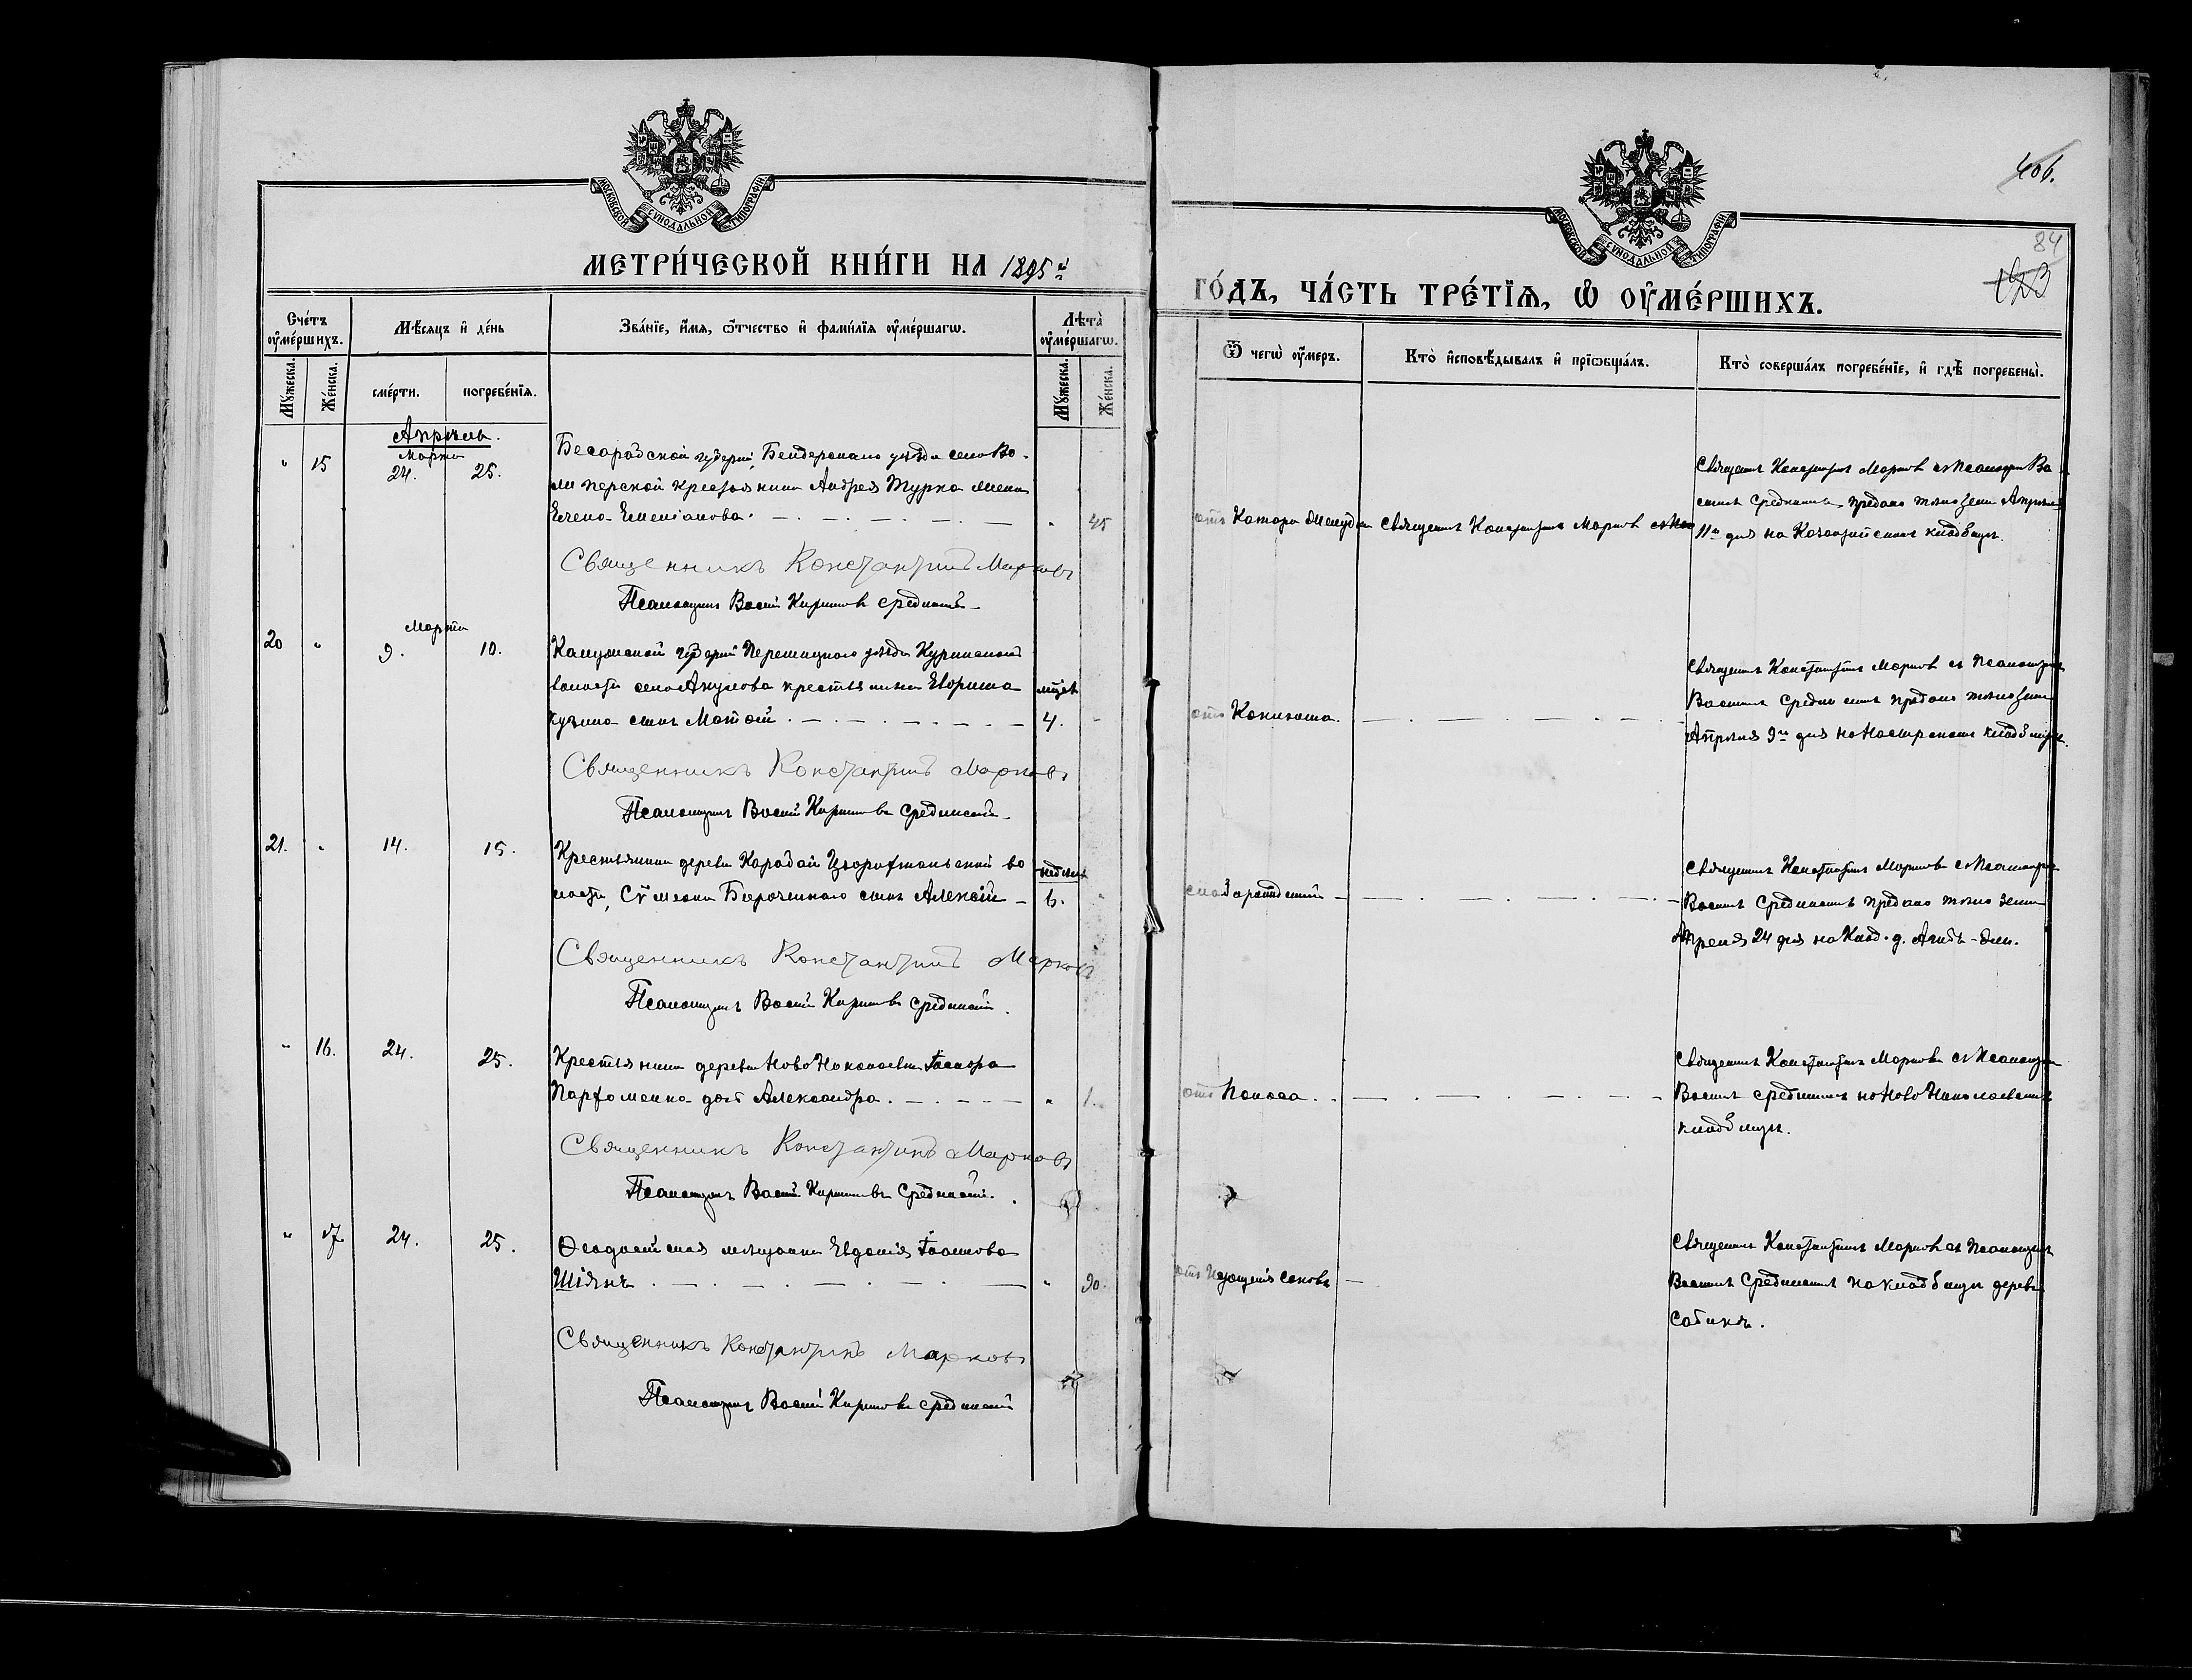 МОСКОВСКОЙ СѴНОДАЛЬНОЙ ТИПОГРАФІИ
МЕТРИ́ЧЕСКОЙ КНИ́ГИ НА 1895 й
Сче́тъ оу҆ме́ршихъ.
Мѣ́сяцъ и҆ де́нь
Зва́нїе, и҆́мя, ѻ҆́тчество и҆ фами́лїя оу҆ме́ршагѡ.
Лѣ́та оу҆ме́ршагѡ.
Мꙋ́жеска.
Же́нска.
сме́рти.
погребе́нїя.
Мꙋ́жеска.
Же́нска.
Апрѣль.
Марта
" 15 24. 25.
Бесарабской губерніи, Бендерскаго уѣзда села Во-
крестьянина Андрея Турка жена
Елена Емеліанова. " 45
Священникъ Константинъ Марковъ
Псаломщикъ Василій Кирилловъ Срединскій
Марта
20 " 9. 10.
Калужской губерніи Перемышскаго уѣзда
волости села Акулова крестьянина
сынъ Матѳей. мѣсяц. 4. "
Священникъ Константинъ Марковъ
Псаломщикъ Василій Кирилловъ Срединскій.
21. " 14. 15.
Крестьянина деревни Карабай во
лости, Сѵмеона сынъ Алексій недѣль 6. "
Священникъ Константинъ Марковъ
Псаломщикъ Василій Кирилловъ Срединскій.
" 16. 24. 25.
Крестьянина деревни Ново Николаевки
Парфоменка дочь Александра. " 1.
Священникъ Константинъ Марковъ
Псаломщикъ Василій Кирилловъ Срединскій.
" 17. 24. 25.
Ѳеодосійская мѣщанка Евдокія
Шіянъ. " 90.
Священникъ Константинъ Марковъ
Псаломщикъ Василій Кирилловъ Срединскій
406.
84
123
МОСКОВСКОЙ СѴНОДАЛЬНОЙ ТИПОГРАФІИ
ГО́ДЪ, ЧА́СТЬ ТРЕ́ТЇЯ, Ѡ҆ ОУ҆МЕ́РШИХЪ.
Ѿ чегѡ̀ оу҆́меръ.
Кто̀ и҆сповѣ́дывалъ и҆ прїѡбща́лъ.
Кто̀ соверша́лъ погребе́нїе, и҆ гдѣ̀ погребены̀.
отъ Катара желудка
Священникъ Константинъ Марковъ
Священникъ Константинъ Марковъ съ Псаломщ. Ва-
силіемъ Срединскимъ предано тѣло земли Апрѣля
11го дня на кладбищѣ.
отъ Коклюша.
Священникъ Константинъ Марковъ съ Псаломщик.
Василіемъ Срединскимъ предано тѣло земли
Апрѣля 9го дня на кладбищѣ.
Священникъ Константинъ Марковъ съ Псаломщик.
Василіемъ Срединскимъ предано тѣло земли
Апреля 24 дня на Клад. д. Агибъ-Эли.
отъ Поноса.
Священникъ Константинъ Марковъ съ Псаломщик.
Василіемъ Срединскимъ на Ново Николаевскомъ
кладбищѣ.
отъ Изтощенія Соковъ
Священникъ Константинъ Марковъ съ Псаломщик.
Василіемъ Срединскимъ на кладбищѣ деревни